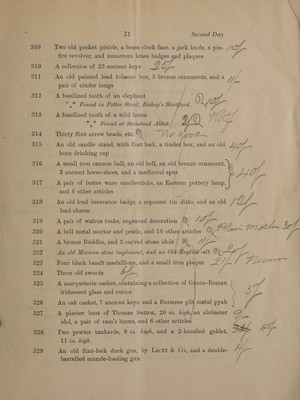 21 Second Day
309 Two old pocket pistols, a brass clock face, a jack knife, a pin-
fire revolver, and numerous brass badges and plaques 10/-
310 A collection of 23 ancient keys 25/-
311 An old painted lead tobacco box, 3 bronze ornaments, and a
pair of cinder tongs
312 A fossilized tooth of an elephant
*** Found in Potter Street, Bishop's Stortford.
313 A fossilized tooth of a wild horse
*** Found at Stanstead Abbot.
314 Thirty flint arrow heads, etc.
315 An old candle stand, with flint lock, a tinder box, and an old
horn drinking cup
316 A small iron cannon ball, an old bell, an old bronze ornament,
2 ancient horse-shoes, and a medieval spur
40/-
317 A pair of lustre ware candlesticks, an Eastern pottery lamp,
and 6 other articles
318 An old lead insurance badge, a repoussé tin ditto, and an old
lead charm
319 A pair of walrus tusks, engraved decoration 10/-
320 A bell metal mortar and pestle, and 10 other articles
321 A bronze Buddha, and 3 carved stone idols
322 An old Mexican stone implement, and an Old English silt 20/-
323 Four black basalt medallions, and a small iron plaque
324 Three old swords
325 A marqueterie casket, containing a collection of Græco-Roman
iridescent glass and coins
326 An oak casket, 7 ancient keys, and a Burmese gilt metal pyah
327 A plaster bust of Thomas Sutton, 20 in. high, an alabaster
idol, a pair of ram's horns, and 6 other articles
328 Two pewter tankards, 9 in. high, and a 2-handled goblet,
11 in. high
329 An old flint-lock duck gun, by LACEY & Co, and a double-
barrelled muzzle-loading gun